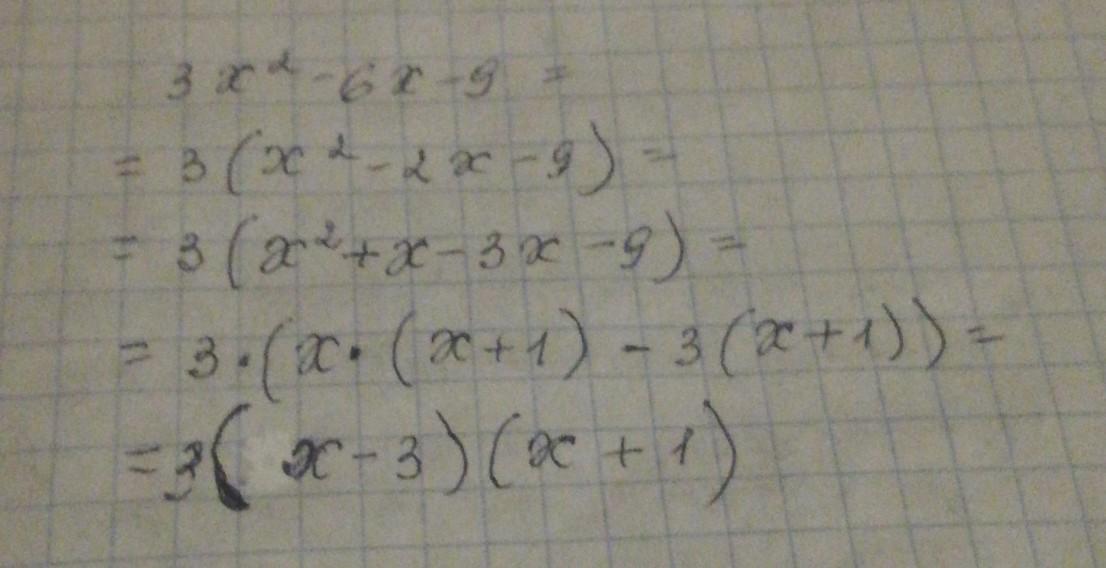 3x² - 6x - 9 =
= 3(x² - 2x - 9) =
= 3(x² + x - 3x - 9) =
= 3·(x·(x+1) - 3(x+1)) =
= 3(x - 3)(x + 1)